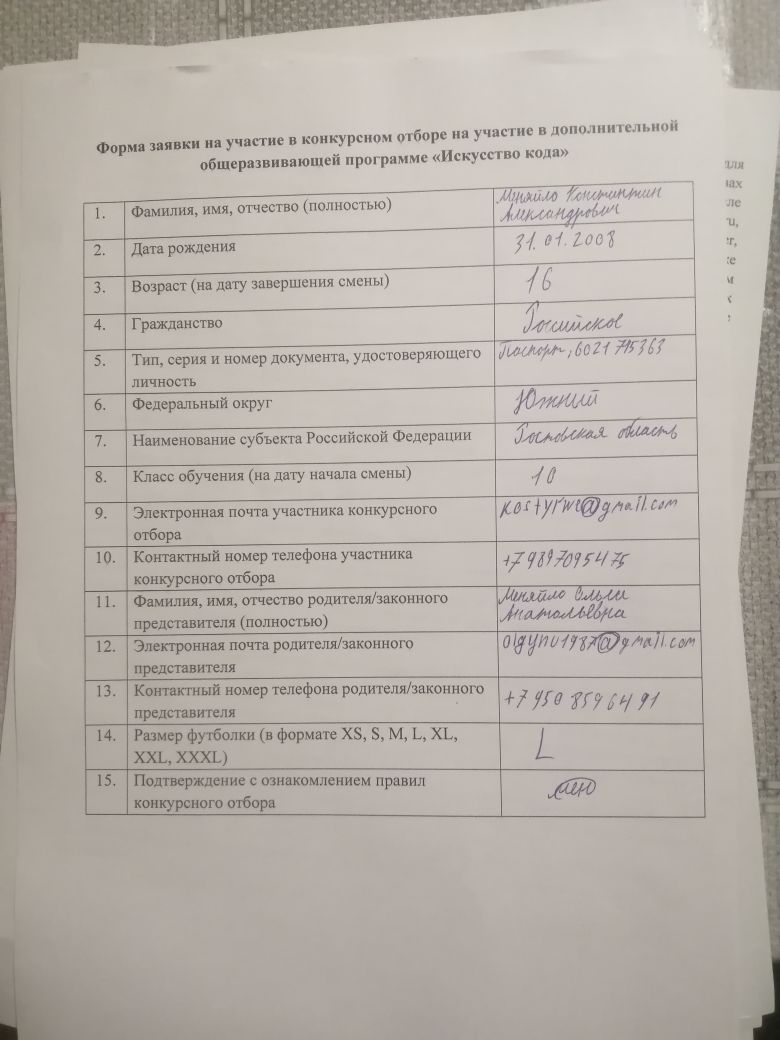 Форма заявки на участие в конкурсном отборе на участие в дополнительной
общеразвивающей программе «Искусство кода»
1. Фамилия, имя, отчество (полностью) Меняйло Константин
Александрович
2. Дата рождения 31.01.2008
3. Возраст (на дату завершения смены) 16
4. Гражданство Российское
5. Тип, серия и номер документа, удостоверяющего Паспорт, 6021 795363
личность
6. Федеральный округ Южный
7. Наименование субъекта Российской Федерации Ростовская область
8. Класс обучения (на дату начала смены) 10
9. Электронная почта участника конкурсного @gmail.com
отбора
10. Контактный номер телефона участника +79897095475
конкурсного отбора
11. Фамилия, имя, отчество родителя/законного Меняйло Ольга
представителя (полностью) Анатольевна
12. Электронная почта родителя/законного @gmail.com
представителя
13. Контактный номер телефона родителя/законного +7 950 859 64 91
представителя
14. Размер футболки (в формате XS, S, M, L, XL, L
XXL, XXXL)
15. Подтверждение с ознакомлением правил
конкурсного отбора
для
ле